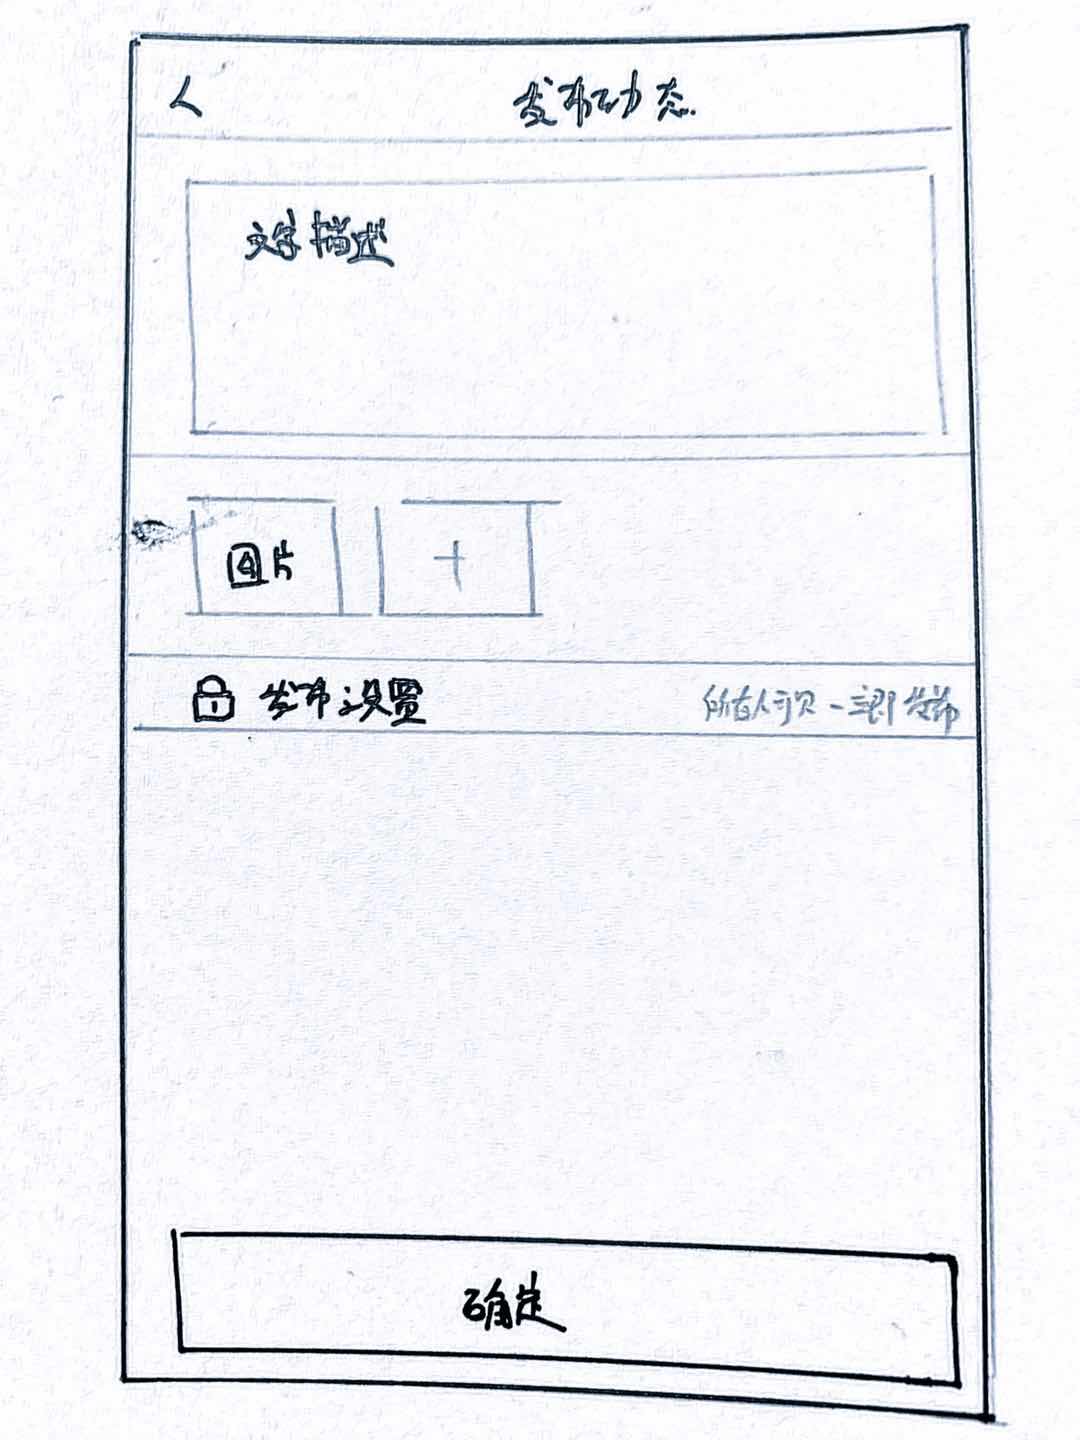 发布动态
文字描述
图片
发布设置
所有人可见-立即发布
确定